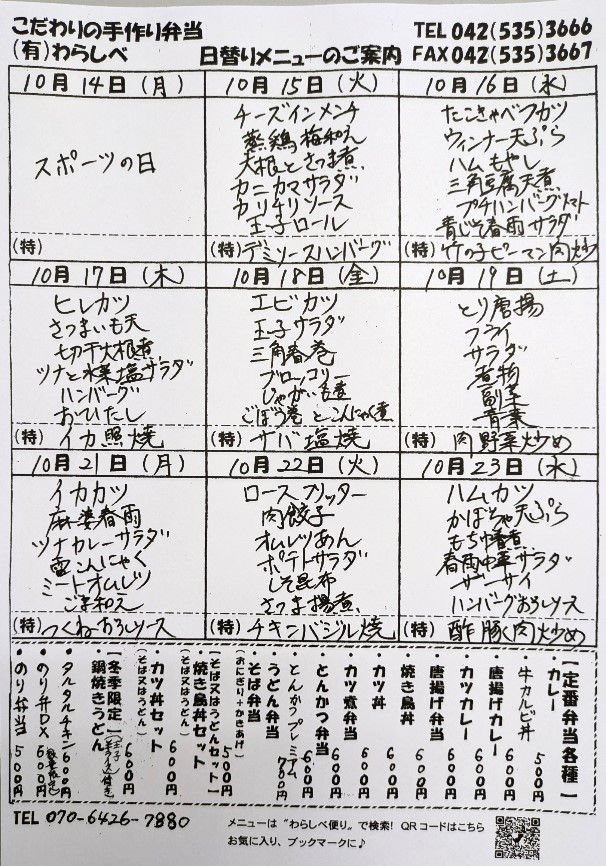 こだわりの手作り弁当
(有)わらしべ
日替りメニューのご案内
TEL 042(535)3666
FAX 042(535)3667
10月14日(月)
スポーツの日
(特)
10月15日(火)
チーズインメンチ
蒸鶏梅和え
大根とさつま煮
カニカマサラダ
カリチリソース
玉子ロール
(特)デミソースハンバーグ
10月16日(水)
たこきゃべつカツ
ウィンナー天ぷら
ハムもやし
三角豆腐天煮
プチハンバーグトマト
青じそ春雨サラダ
(特)竹の子ピーマン肉炒
10月17日(木)
ヒレカツ
さつまいも天
切干大根煮
ツナと水菜塩サラダ
ハンバーグ
おひたし
(特)イカ照焼
10月18日(金)
エビカツ
玉子サラダ
三角春巻
ブロッコリー
じゃがいも煮
ごぼう巻とこんにゃく煮
(特)サバ塩焼
10月19日(土)
とり唐揚
フライ
サラダ
煮物
副菜
青菜
(特)肉野菜炒め
10月21日(月)
イカカツ
麻婆春雨
ツナカレーサラダ
雷こんにゃく
ミートオムレツ
ごま和え
(特)つくねおろしソース
10月22日(火)
ロースフリッター
肉餃子
オムレツあん
ポテトサラダ
しそ昆布
さつま揚煮
(特)チキンバジル焼
10月23日(水)
ハムカツ
かぼちゃ天ぷら
もち巾着煮
春雨中華サラダ
ザーサイ
ハンバーグおろしソース
(特)酢豚(肉)炒め
【定番弁当各種】
カレー 500円
牛カルビ丼 600円
唐揚げカレー 600円
カツカレー 600円
唐揚げ弁当 600円
焼き鳥丼 600円
カツ丼 600円
カツ煮弁当 600円
とんかつ弁当 600円
とんかつプレミアム 700円
うどん弁当
そば弁当 500円
(おにぎり+かきあげ)
【そば又はうどんセット】
焼き鳥丼セット 600円
(そば又はうどん)
カツ丼セット 600円
(そば又はうどん)
【冬季限定】
鍋焼きうどん 600円
タルタルチキン 600円
のり弁DX 600円
のり弁当 500円
TEL 070-6426-7880
メニューは“わらしべ便り”で検索! QRコードはこちら
お気に入り、ブックマークに♪